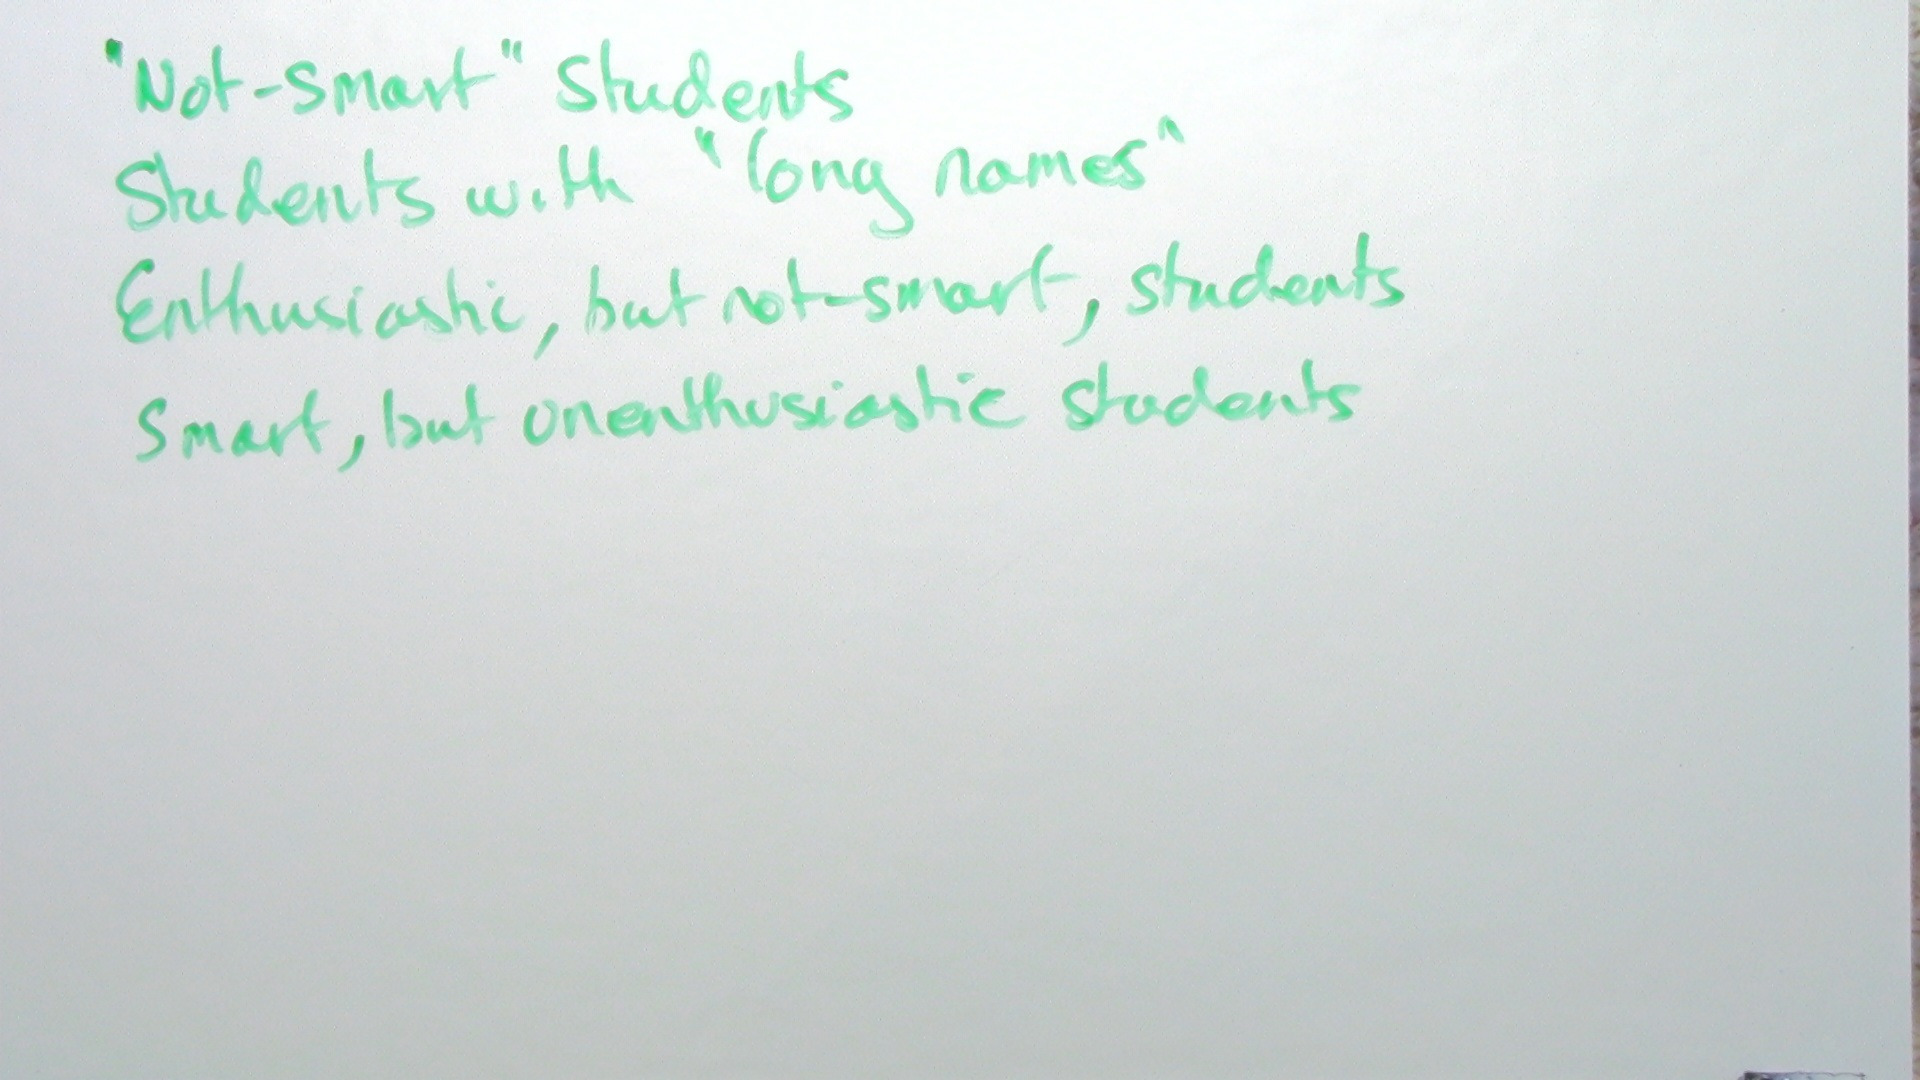 "Not-smart" Students
Students with "long names"
Enthusiastic, but not-smart, students
Smart, but unenthusiastic students